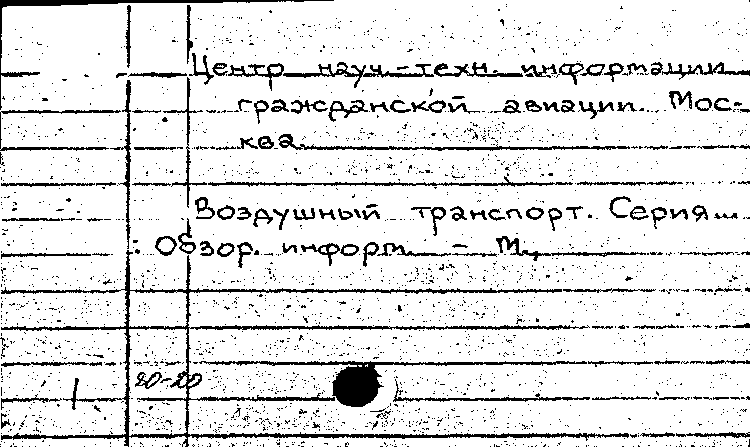 Центр науч.-техн. информации
гражданской авиации. Мос-
ква.
Воздушный транспорт. Серия...
: Обзор. информ. - М.,
20-20